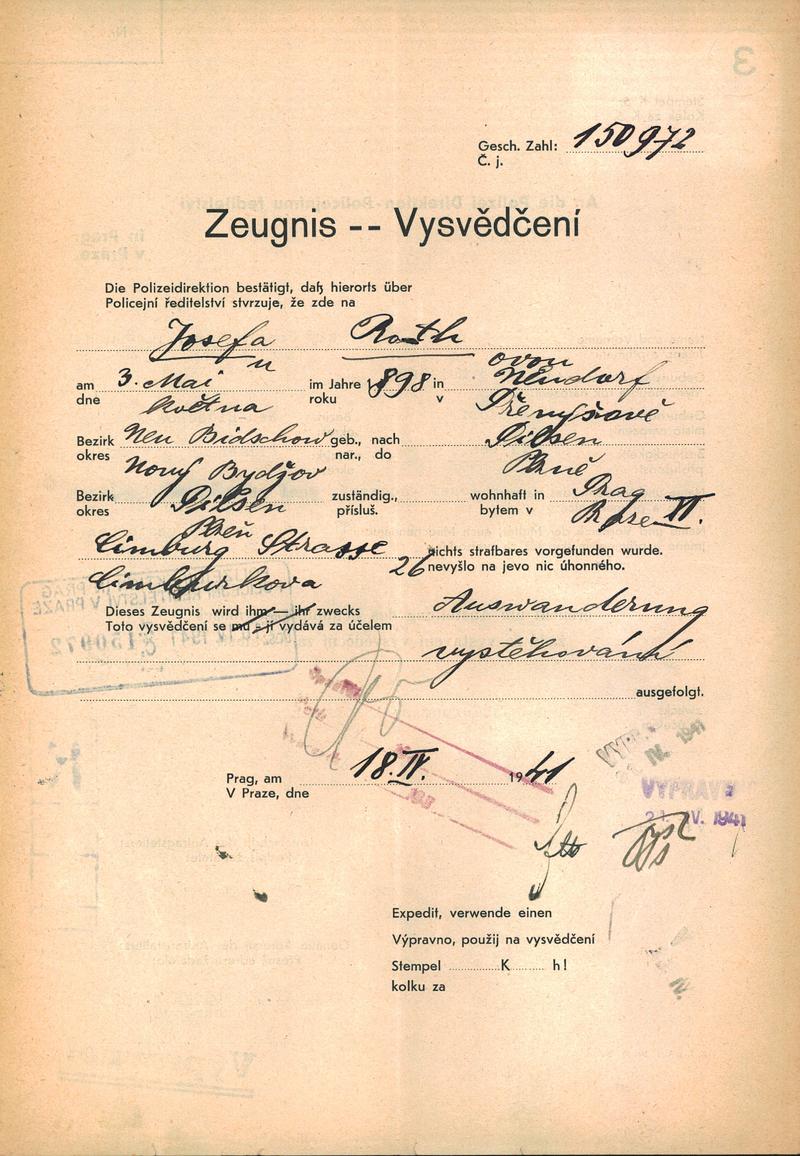 3
Gesch. Zahl: 150972
Č. j.
Zeugnis -- Vysvědčení
Die Polizeidirektion bestätigt, daß hierorts über
Policejní ředitelství stvrzuje, že zde na
Josefa Roth
u ovou
am 3. Mai im Jahre 1898 in Neudorf
dne května roku v
Bezirk Neu Bidschow geb., nach Pilsen
okres Nový Bydžov nar., do Plzně
Bezirk Pilsen zuständig., wohnhaft in Prag
okres Plzeň přísluš. bytem v Praze XI.
Limburg Strasse 26 nichts strafbares vorgefunden wurde.
Limburkova nevyšlo na jevo nic úhonného.
Dieses Zeugnis wird ihm — ihr zwecks Auswanderung
Toto vysvědčení se mu - jí vydává za účelem
vystěhování
ausgefolgt.
150972
Prag, am 18.IV. 1941
V Praze, dne
IV. 1941
VYPRAVENO
21. IV. 1941
Expedit, verwende einen
Výpravno, použij na vysvědčení
Stempel K h!
kolku za